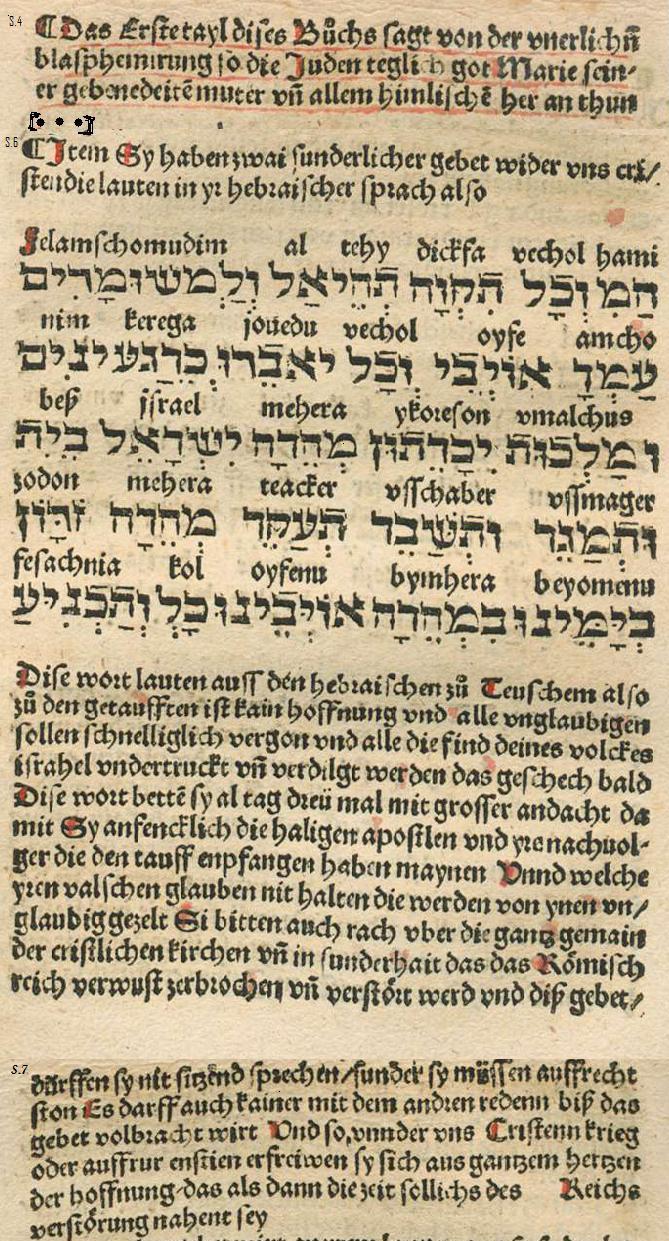 S.4
¶Das Erste tayl dises Bůchs sagt von der vnerlichñ
blasphemirung so die Juden teglich got Marie sein-
er gebenedeitẽ muter vñ allem himlischẽ her an thun
[• • •]
S.6
¶Item Sy haben zwai sunderlicher gebet wider vns cri/
sten die lauten in yr hebraischer sprach also
Felamschomudim al tehy dickfa vechol hami
הַמִ וְכָל תִּקְוָה תְּהִי אַל וְלַמְשׁוּמָדִים
nim kerega jouedu vechol oyfe amcho
עַמְךָ אוֹיְבֵי וְכָל יֹאבֵדוּ כְּרֶגַע ינִים
beß jsrael mehera ykoreson vmalchus
וּמַלְכוּת יִכָרֵתוּן מְהֵרָה יִשְׂרָאֵל בֵּית
zodon mehera teacker vsschaber vssmager
וּתְמַגֵר וּתְשַׁבֵר תְּעַקֵר מְהֵרָה זָדוֹן
fesachnia kol oyfenu bymhera beyomenu
בְּיָמֵינוּ בִּמְהֵרָה אוֹיְבֵינוּ כָּל וְתַכְנִיעַ
Dise wort lauten auss den hebraischen zů Teuschem also
zů den getaufften ist kain hoffnung vnd alle vnglaubigen
sollen schnelliglich vergon vnd alle die find deines volckes
israhel vndertruckt vñ verdilgt werden das geschech bald
Dise wort bettẽ sy al tag dreü mal mit grosser andacht da
mit Sy anfencklich die haligen apostlen vnd yre nachuol-
ger die den tauff enpfangen haben maynen Vnnd welche
yren valschen glauben nit halten die werden von ynen vn/
glaubig gezelt Si bitten auch rach vber die gantz gemain
der cristlichen kirchen vñ in sunderhait das das Römisch
reich verwust zerbrochen vñ verstört werd vnd diß gebet/
S.7
dürffen sy nit sitzend sprechen/sunder sy müssen auffrecht
ston Es darff auch kainer mit dem andren redenn biß das
gebet volbracht wirt Vnd so vnnder vns Cristenn krieg
oder auffrur enstien erfreiwen sy sich aus gantzem hertzen
der hoffnung das als dann die zeit sollichs des Reichs
verstörung nahent sey